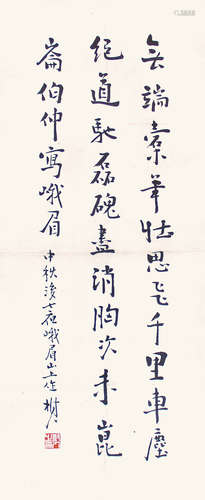 無端橐筆壯思飞千里車塵
絕道馳磊磈盡消胸次未崑
崙伯仲寫峨眉
中秋後七夜峨眉山上作 樹